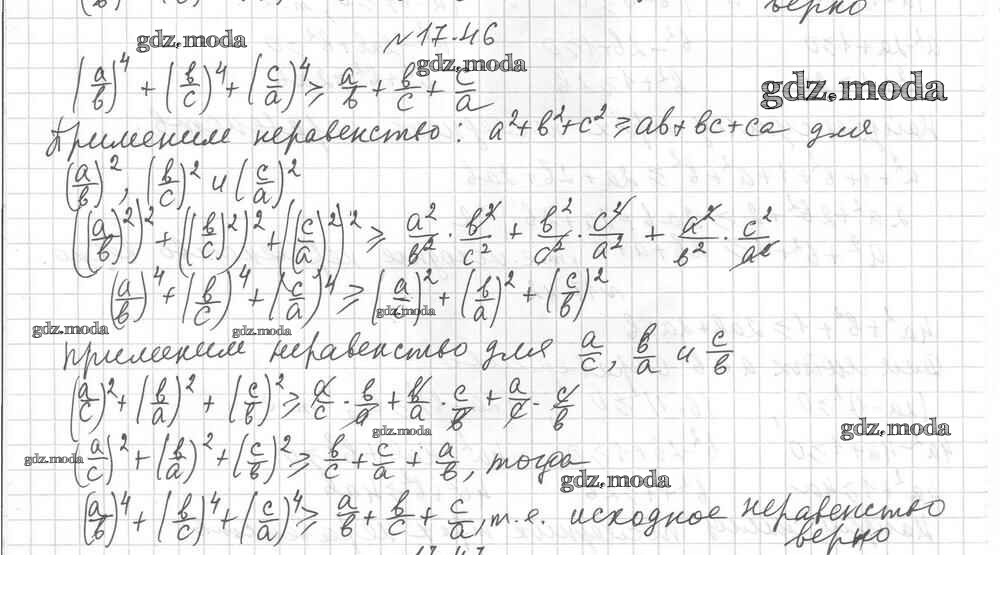 верно
№17.46
gdz.moda
gdz.moda
gdz.moda
(a/в)^4 + (в/c)^4 + (c/a)^4 ⩾ a/в + в/c + c/a
Применим неравенство: a²+в²+c² ⩾ aв+вc+ca для
(a/в)², (в/c)² и (c/a)²
((a/в)²)² + ((в/c)²)² + ((c/a)²)² ⩾ a²/в² · в²/c² + в²/c² · c²/a² + a²/в² · c²/a²
(a/в)^4 + (в/c)^4 + (c/a)^4 ⩾ (a/c)² + (в/a)² + (c/в)²
gdz.moda
gdz.moda
gdz.moda
применим неравенство для a/c, в/a и c/в
(a/c)² + (в/a)² + (c/в)² ⩾ a/c · в/a + в/a · c/в + a/c · c/в
gdz.moda
gdz.moda
gdz.moda
(a/c)² + (в/a)² + (c/в)² ⩾ в/c + c/a + a/в, тогда
gdz.moda
(a/в)^4 + (в/c)^4 + (c/a)^4 ⩾ a/в + в/c + c/a, т.е. исходное неравенство
верно